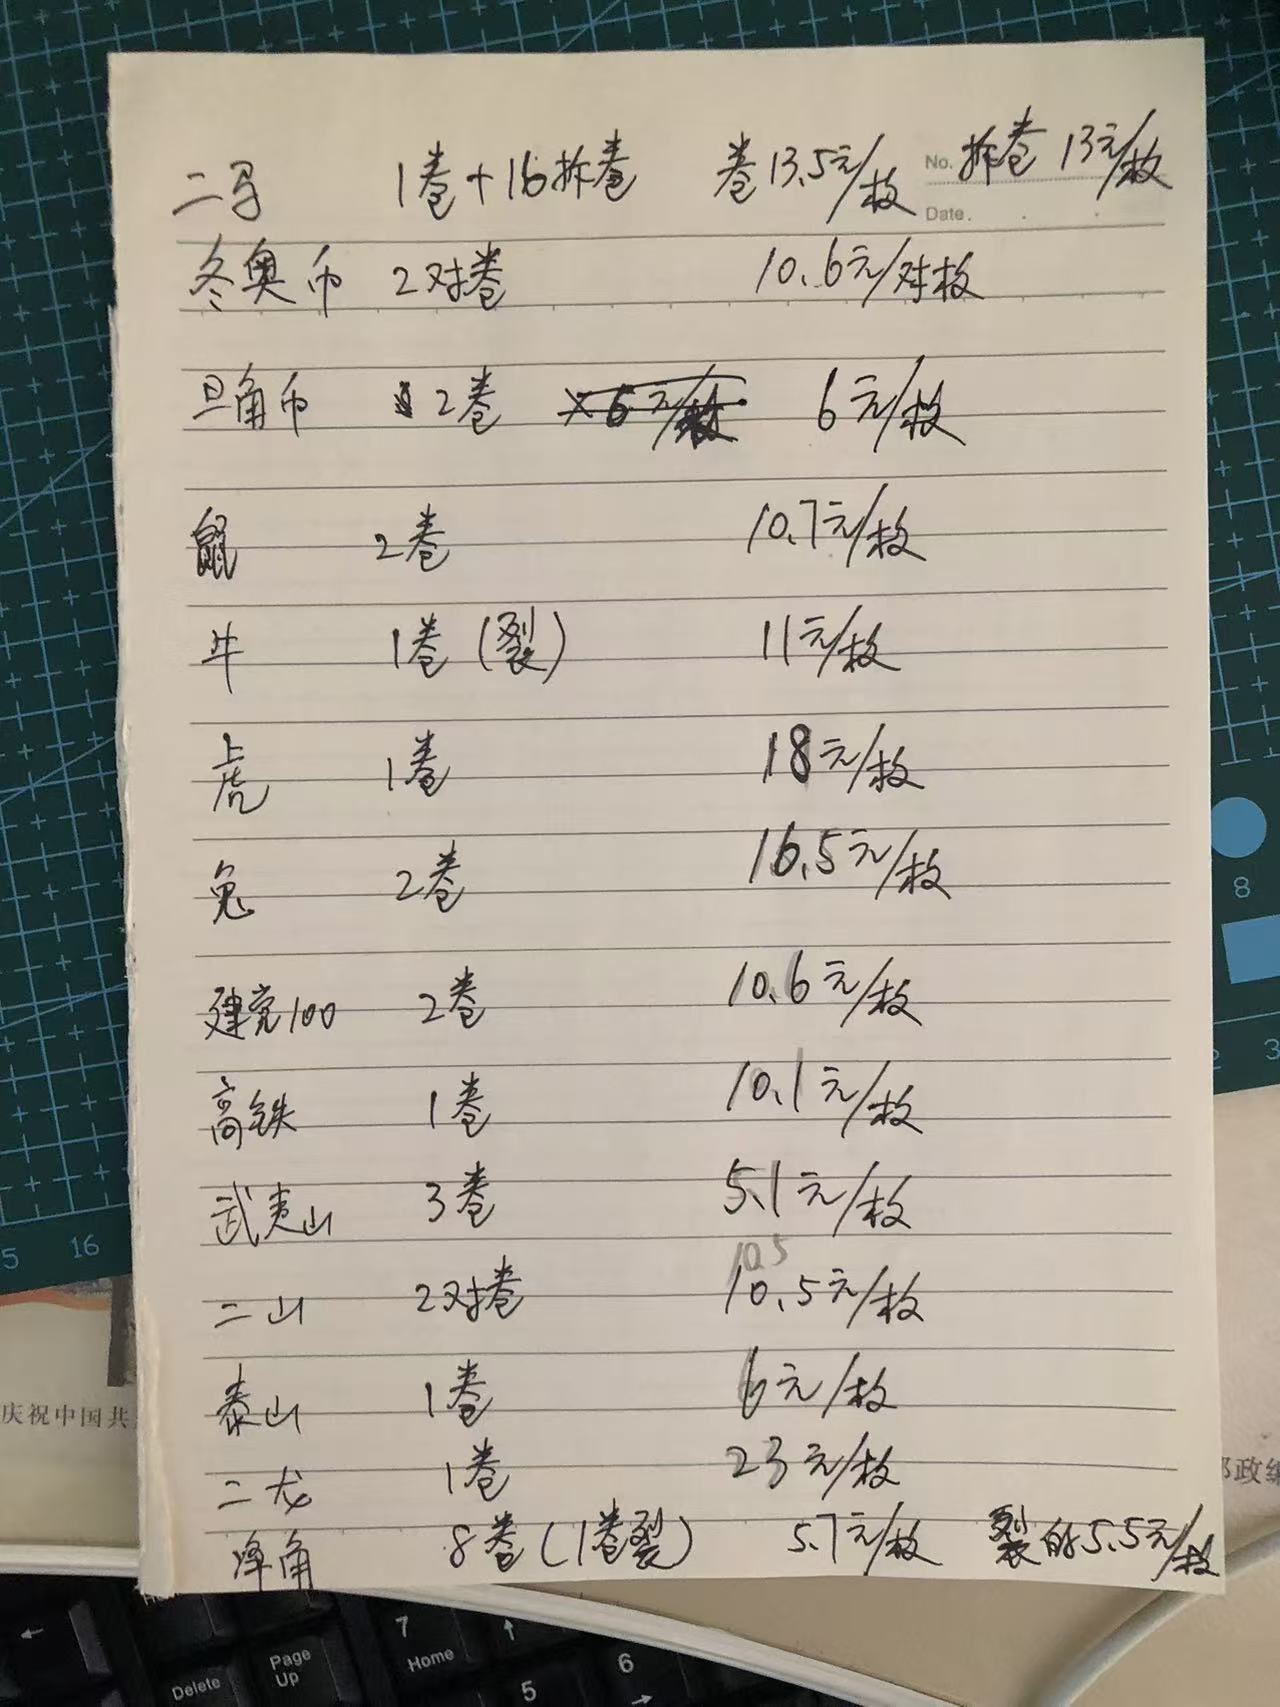 二马 1卷+16拆卷 卷13.5元/枚 No. 拆卷 13元/枚
Date.
冬奥币 2对卷 10.6元/对枚
旦角币 2卷 ×6元/枚 6元/枚
鼠 2卷 10.7元/枚
牛 1卷(裂) 11元/枚
虎 1卷 18元/枚
兔 2卷 16.5元/枚
建党100 2卷 10.6元/枚
高铁 1卷 10.1元/枚
武夷山 3卷 5.1元/枚
10.5
二山 2对卷 10.5元/枚
泰山 1卷 6元/枚
二龙 1卷 23元/枚
净角 8卷(1卷裂) 5.7元/枚 裂的5.5元/枚
5 16
8
3
庆祝中国共
邮政编
Delete
Page
Up
7
Home
5
6